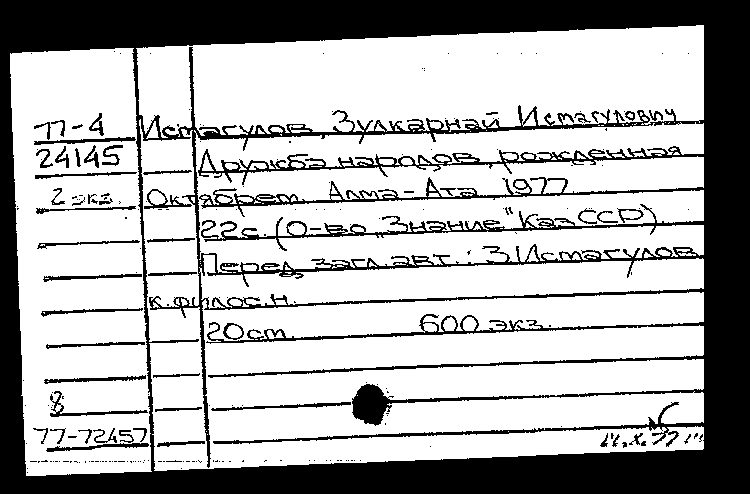 П-4 Исмагулов, Зулкарнай Исмагулович
24145 Дружба народов, рожденная
2 экз. Октябрем. Алма-Ата 1977
22с. (О-во „Знание" КазССР).
Перед загл. авт.: З. Исмагулов
к.филос.н.
20 ст. 600 экз.
8
77-72457